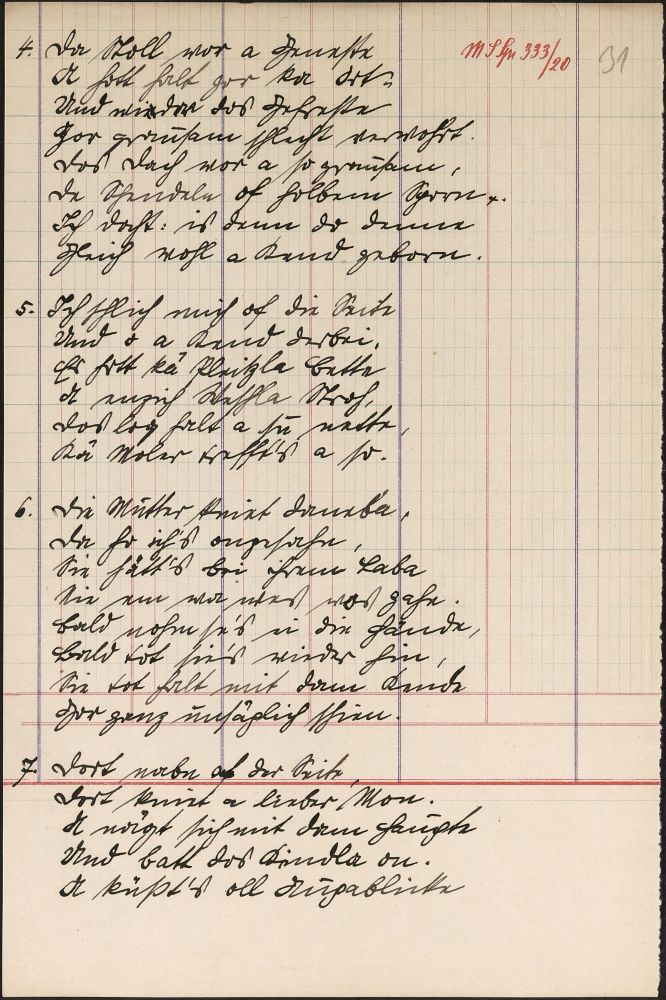 MSHu 333/20
31
4. Da Stoll wor a Geneste
A hott halt gor ka Ort,
Und wieder dos Gefreste
Gor grausam schlecht verwohrt.
Dos Dach wor a so grausam,
De Schendeln of holbem Sporn.
Ich docht: is denn do denne
Gleich wohl a Kend geborn.
5. Ich schlich mich of die Seite
Und o a Kend derbei,
Es hott kä Bette
A enzich Weschla Stroh,
Dos log halt a su nette,
Kä Moler trefft's a so.
6. Die Mutter kniet daneba,
Da ho ich's ongesahn,
Sie hätt's bei ihrem Laba
Nie em wa wes wos gahn.
Bald nohm se's ei die Hände,
Bald tot sie's wieder hin,
Sie tot halt mit dam Kende
Gor ganz unsäglich schien.
7. Dort nabn of der Seite,
Dort kniet a lieber Mon.
A neigt sich mit dam Haupte
Und batt dos Kindla on.
A küßt's oll Augablicke